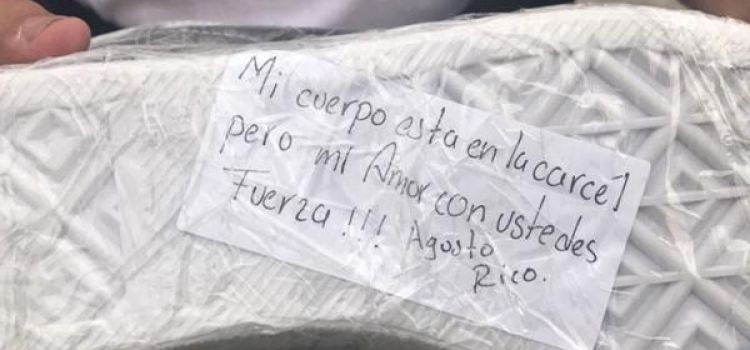 Mi cuerpo esta en la carcel
pero mi Amor con ustedes
Fuerza!!! Agosto
Rico.